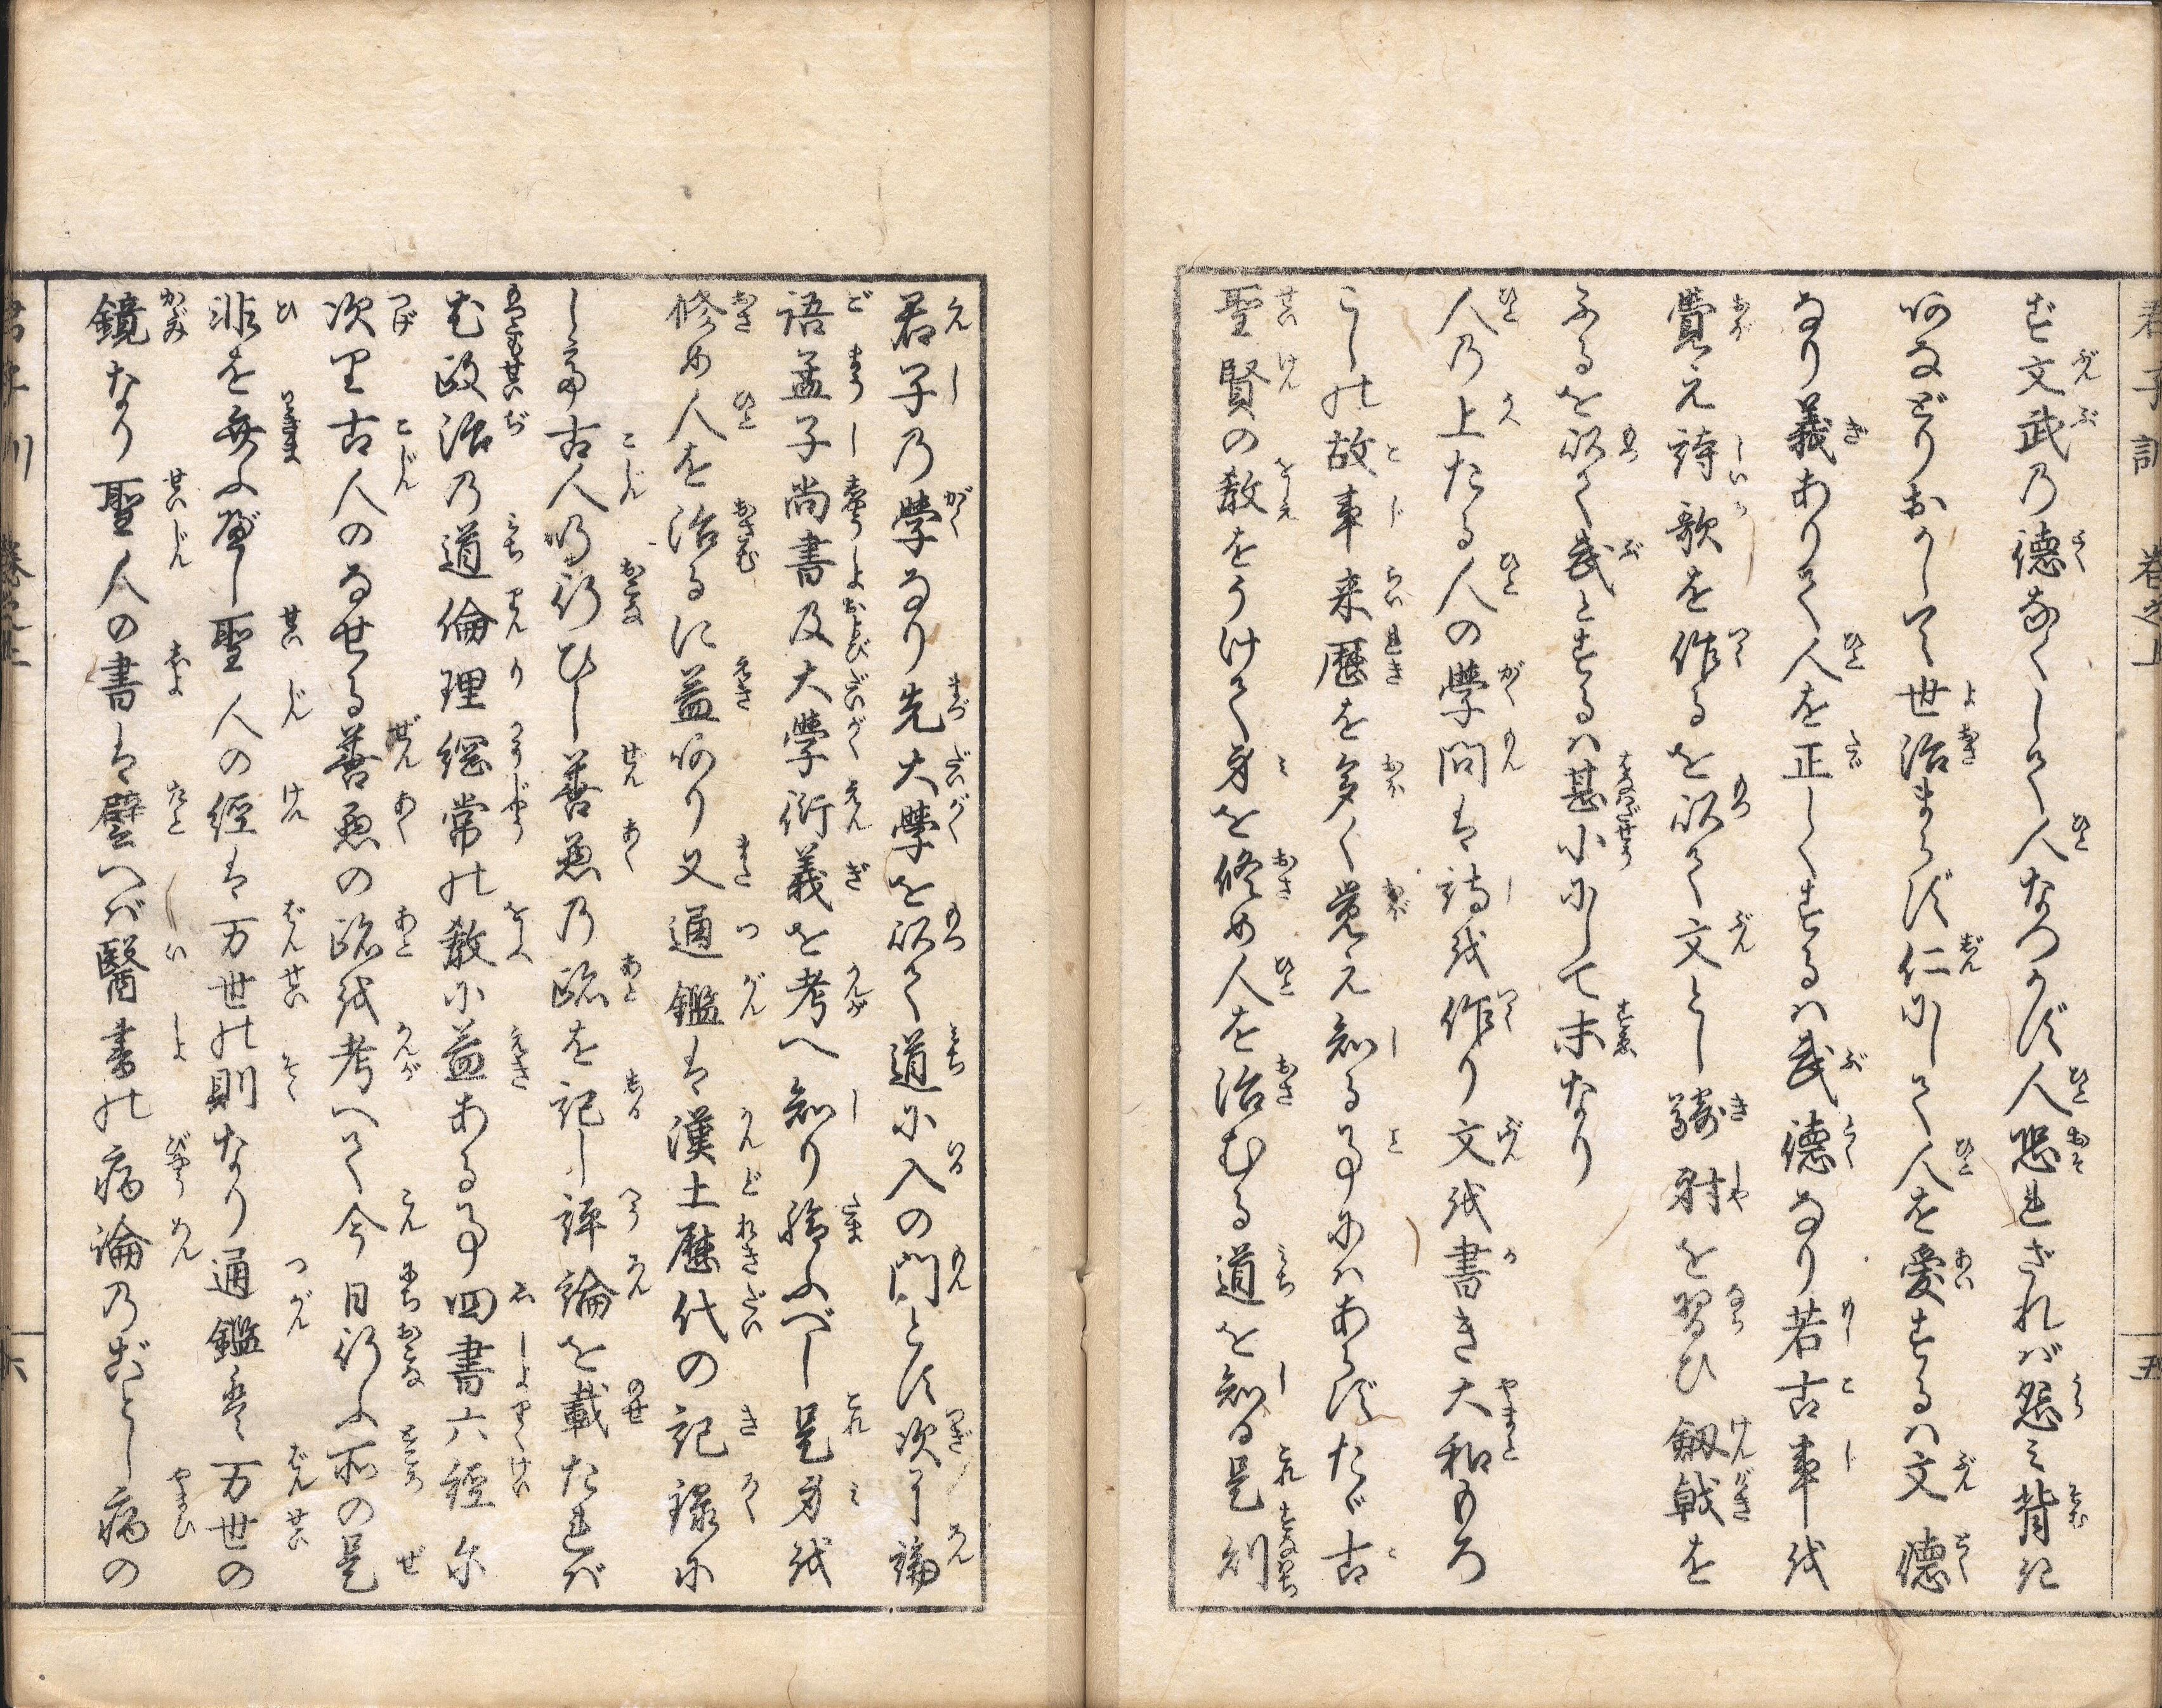 君子訓 巻之上 五
ず文武乃徳なくして人なつかず人恐れざれば怨ミ背き
あなどりおかして世治まらず仁にして人を愛するハ文徳
なり義ありて人を正しくするハ武徳なり若古事を
覺え詩歌を作るを以て文とし騎射を習ひ劔戟を
ふるを以て武とするハ甚小にして末なり
人乃上たる人の學問は詩を作り文を書き大和もろ
こしの故事来歴を多く覚え知る事にハあらずたゞ古
聖賢の教をうけて身を修め人を治むる道を知る是則
君子乃學なり先大學を以て道に入の門とす次に論
語孟子尚書及大學衍義を考へ知り給ふべし是身を
修め人を治るに益あり又通鑑は漢土歴代の記録に
して古人の行ひし善悪乃跡を記し評論を載たれば
尤政治乃道倫理綱常の教に益ある事四書六經に
次り古人のなせる善悪の跡を考へて今日行ふ所の是
非を無ふ處し聖人の經は万世の則なり通鑑は万世の
鏡なり聖人の書は譬へば醫書の病論乃ごとし病の
君子訓 巻之上 六